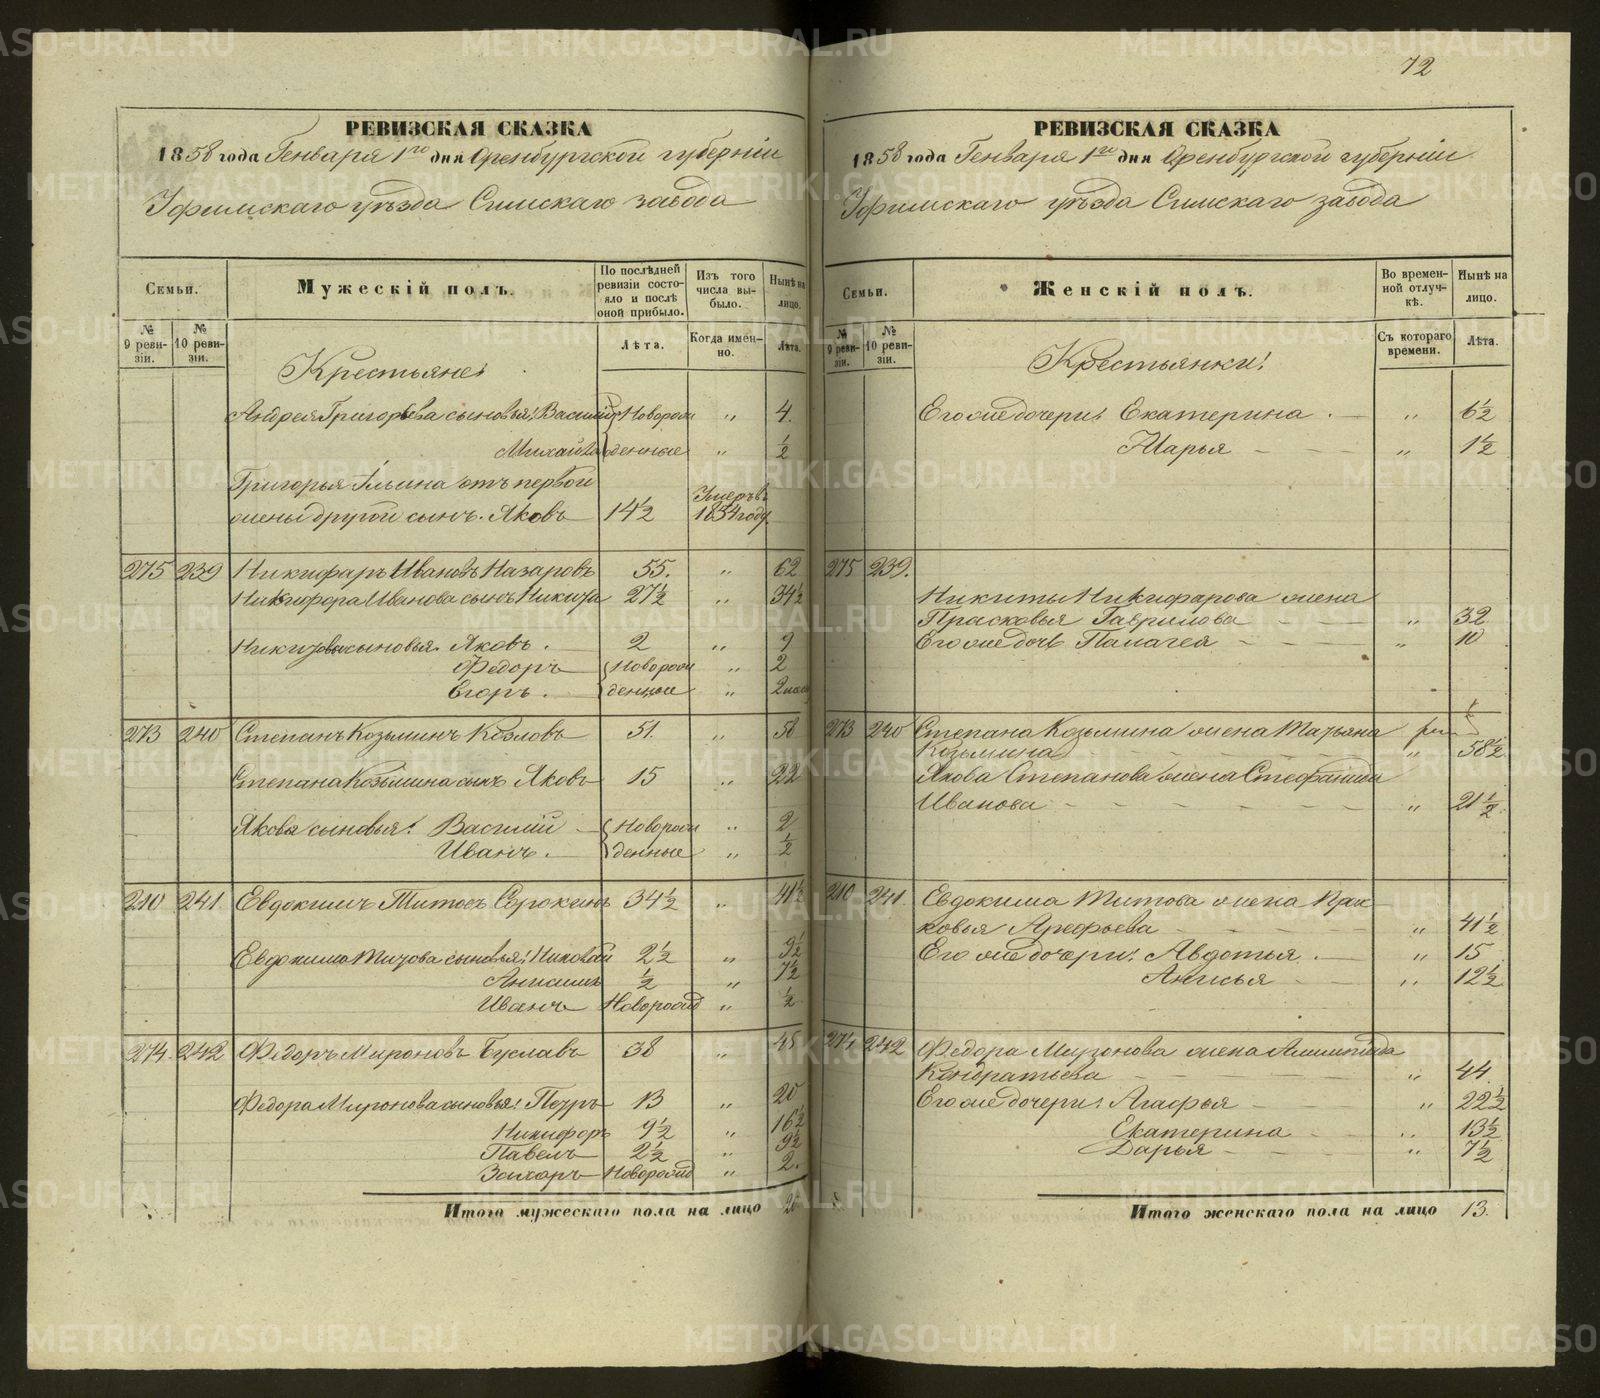 72
РЕВИЗСКАЯ СКАЗКА
1858 года Генваря 1го дня Оренбургской губерніи
Уфимскаго уѣзда Симскаго завода
Семьи.
Мужескій полъ.
По послѣдней ревизіи состояло и послѣ оной прибыло.
Изъ того числа выбыло.
Нынѣ на лицо.
№ 9 ревизіи.
№ 10 ревизіи.
Лѣта.
Когда именно.
Лѣта.
Крестьяне:
Андрея Григорьева сыновья: Василій Новорож „ 4.
Михайла денные „ ½
Григорья Ильина отъ первой
жены другой сынъ. Яковъ 14½ Умеръ въ 1854 году
275 239 Никифаръ Ивановъ Назаровъ 55. „ 62
Никифора Иванова сынъ Никита 27½ „ 34½
Никиты сыновья. Яковъ. 2 „ 9
Федоръ Новорож „ 2
Егоръ. денные „ 2 мес
273 240 Степанъ Козьминъ Козловъ 51. „ 58
Степана Козьмина сынъ Яковъ 15 „ 22
Якова сыновья: Василій Новорож „ 2
Иванъ. денные „ ½
210 241 Евдокимъ Титовъ Сорокинъ 34½ „ 41½
Евдокима Титова сыновья: Николай 2½ „ 9½
Анисимъ ½ „ 7½
Иванъ Новорожд „ ½
274 242 Федоръ Мироновъ Буславъ 38 „ 45
Федора Миронова сыновья: Петръ 13 „ 20
Никифоръ 9½ „ 16½
Павелъ 2½ „ 9½
Захаръ Новорожд „ 2.
Итого мужескаго пола на лицо 20
РЕВИЗСКАЯ СКАЗКА
1858 года Генваря 1го дня Оренбургской губерніи
Уфимскаго уѣзда Симскаго завода
Семьи.
Женскій полъ.
Во временной отлучкѣ.
Нынѣ на лицо.
№ 9 ревизіи.
№ 10 ревизіи.
Съ котораго времени.
Лѣта.
Крестьянки:
Его же дочери: Екатерина „ 6½
Марья „ 1½
275 239.
Никиты Никифарова жена
Прасковья Гаврилова „ 32
Его же дочь Палагея „ 10
273 240 Степана Козьмина жена Татьяна
Козьмина „ 58½
Якова Степанова жена Стефанида
Иванова „ 21½
210 241 Евдокима Титова жена Прас
ковья Арефьева „ 41½
Его же дочери: Авдотья. „ 15
Анисья „ 12½
274 242 Федора Миронова жена Алимпіада
Кондратьева „ 44
Его же дочери: Агафья „ 22½
Екатерина „ 13½
Дарья „ 7½
Итого женскаго пола на лицо 13.
METRIKI.GASO-URAL.RU